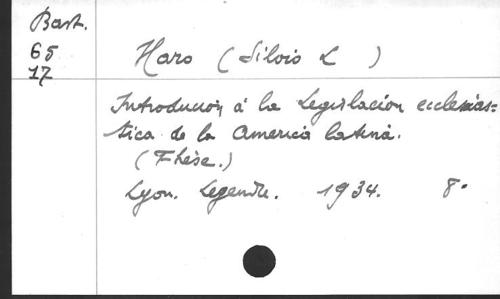 Bast.
65
17
Haro (Silvio L )
Introducion á la Legislacion ecclesias=
tica de la America latina.
(Thèse.)
Lyon. Legendre. 1934. 8°